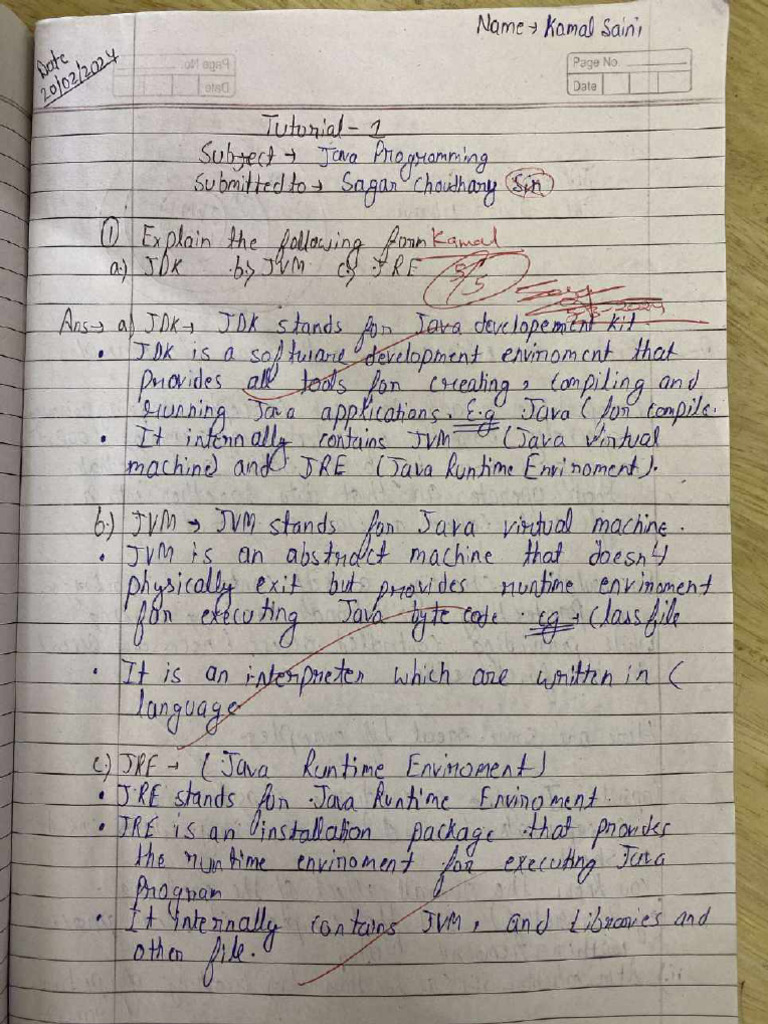 Name → Kamal Saini
Date
20/02/2024
Page No.
Date
Tutorial - 1
Subject → Java Programming
Submitted to → Sagar Choudhary Sir
① Explain the following form Kamal
a.) JDK b.) JVM c.) JRE
Ans → a) JDK → JDK stands for Java developement kit
• JDK is a software development enviroment that
provides all tools for creating, compiling and
running Java applications. E.g Java ( for compile.
• It internally contains JVM (Java virtual
machine) and JRE (Java Runtime Enviroment).
b.) JVM → JVM stands for Java virtual machine.
• JVM is an abstract machine that doesn't
physically exit but provides runtime enviroment
for executing Java byte code. eg → Class file
• It is an interpreter which are written in C
language
c.) JRE → (Java Runtime Enviroment)
• JRE stands for Java Runtime Enviroment.
• JRE is an installation package that provides
the runtime enviroment for executing Java
program
• It internally contains JVM, and Libraries and
other file.